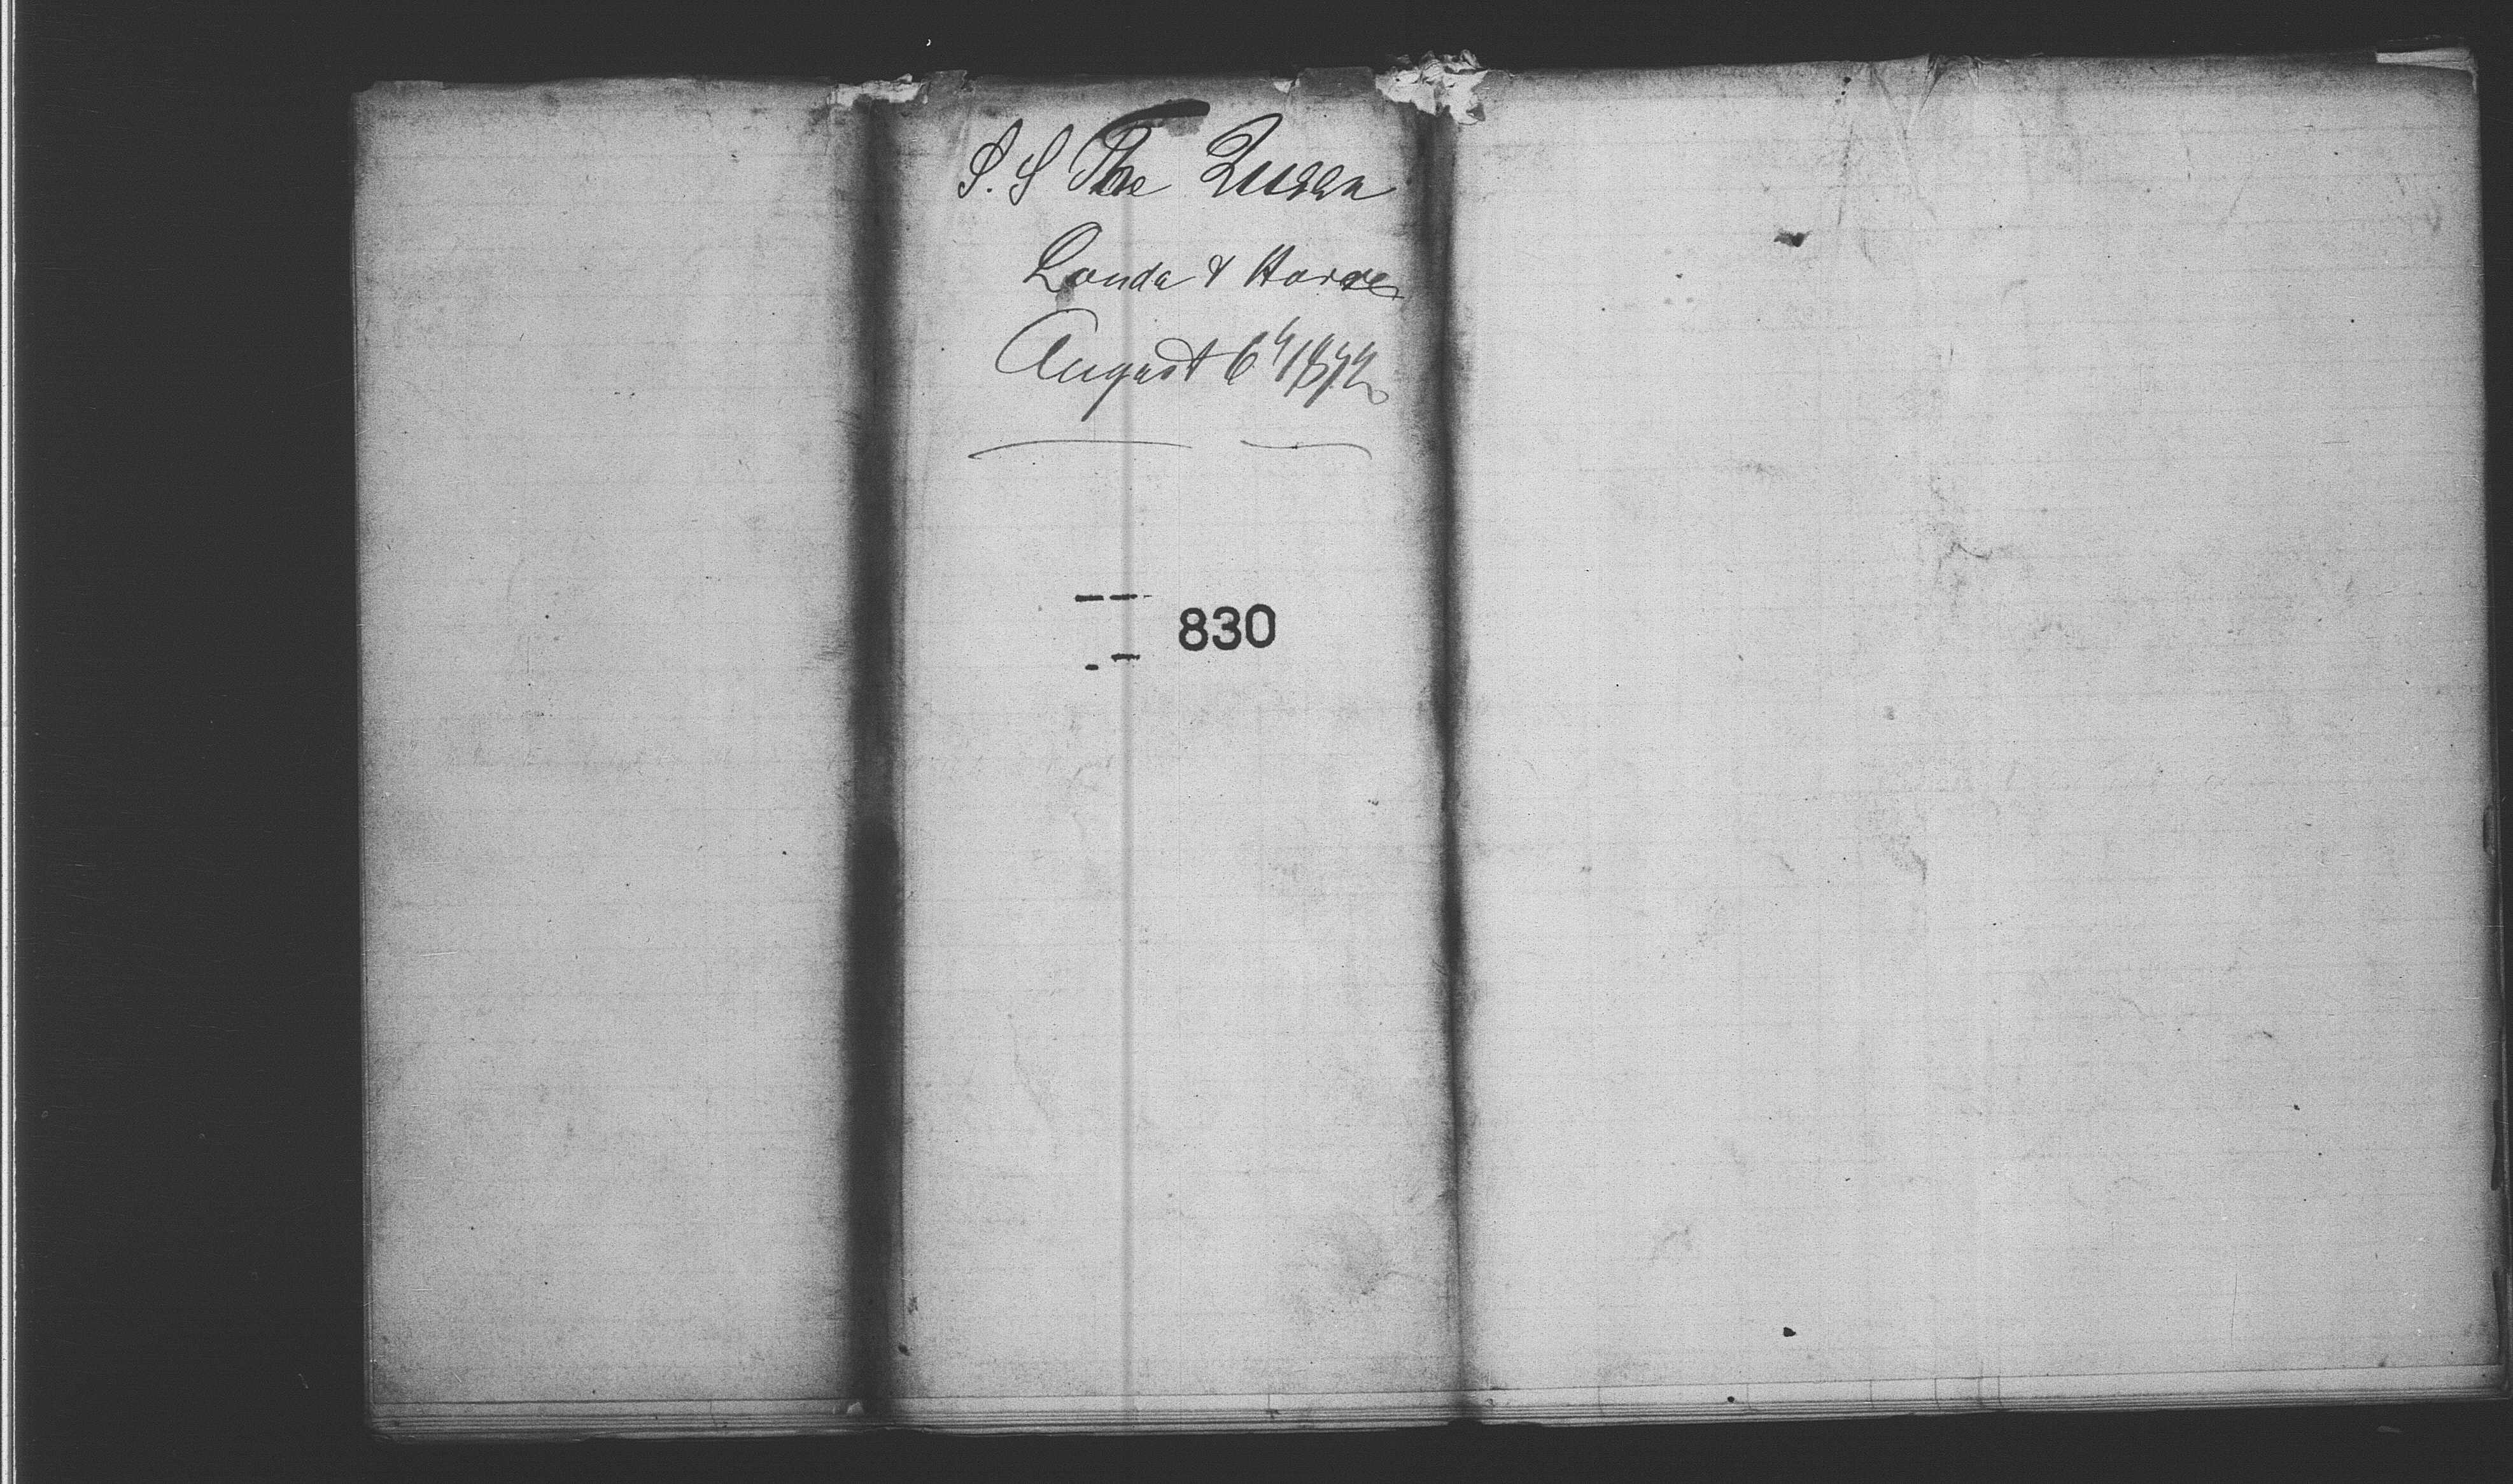 S.S The Queen
Londn & Havre
August 6th 1872
830